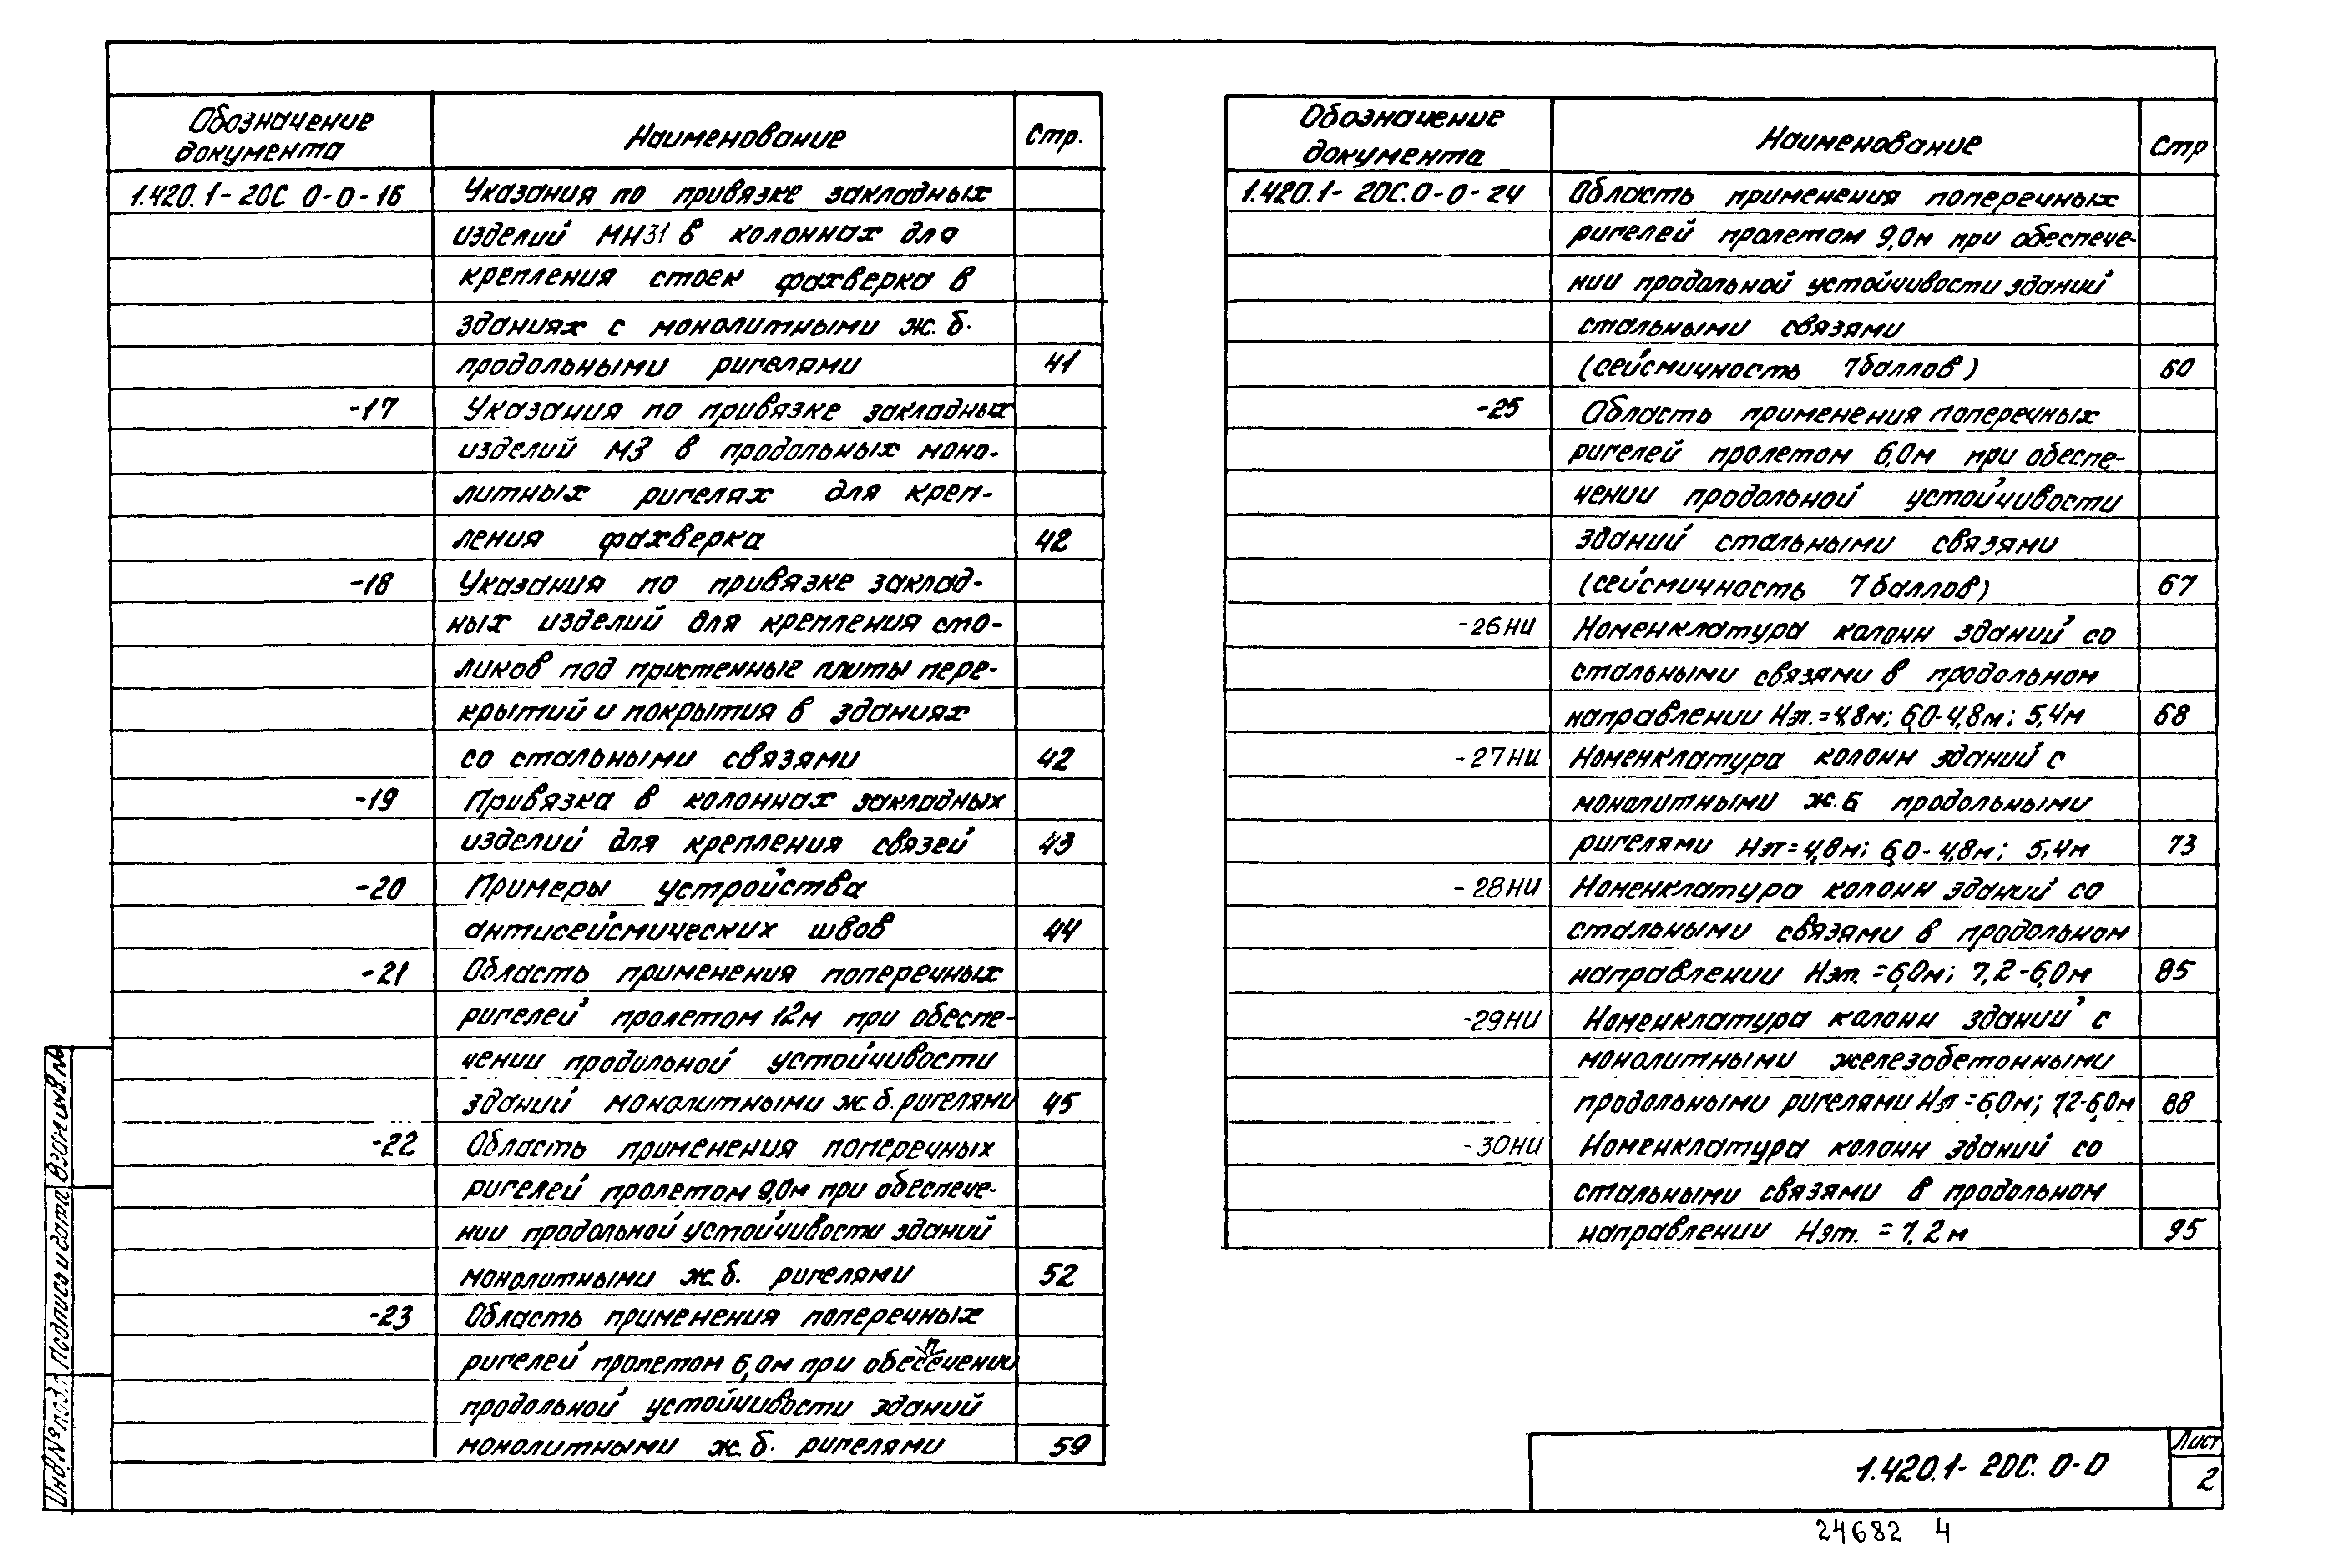 Обозначение документа Наименование Стр.
1.420.1-20С 0-0-16 Указания по привязке закладных
изделий МН31 в колоннах для
крепления стоек фахверка в
зданиях с монолитными ж.б.
продольными ригелями 41
-17 Указания по привязке закладных
изделий М3 в продольных моно-
литных ригелях для креп-
ления фахверка 42
-18 Указания по привязке заклад-
ных изделий для крепления сто-
ликов под пристенные плиты пере-
крытий и покрытия в зданиях
со стальными связями 42
-19 Привязка в колоннах закладных
изделий для крепления связей 43
-20 Примеры устройства
антисейсмических швов 44
-21 Область применения поперечных
ригелей пролетом 12м при обеспе-
чении продольной устойчивости
зданий монолитными ж.б. ригелями 45
-22 Область применения поперечных
ригелей пролетом 9,0м при обеспече-
нии продольной устойчивости зданий
монолитными ж.б. ригелями 52
-23 Область применения поперечных
ригелей пролетом 6,0м при обеспечении
продольной устойчивости зданий
монолитными ж.б. ригелями 59
Обозначение документа Наименование Стр
1.420.1-20С.0-0-24 Область применения поперечных
ригелей пролетом 9,0м при обеспече-
нии продольной устойчивости зданий
стальными связями
(сейсмичность 7баллов) 60
-25 Область применения поперечных
ригелей пролетом 6,0м при обеспе-
чении продольной устойчивости
зданий стальными связями
(сейсмичность 7 баллов) 67
-26НИ Номенклатура колонн зданий со
стальными связями в продольном
направлении Нэт.=4,8м; 6,0-4,8м; 5,4м 68
-27НИ Номенклатура колонн зданий с
монолитными ж.б продольными
ригелями Нэт=4,8м; 6,0-4,8м; 5,4м 73
-28НИ Номенклатура колонн зданий со
стальными связями в продольном
направлении Нэт.=6,0м; 7,2-6,0м 85
-29НИ Номенклатура колонн зданий с
монолитными железобетонными
продольными ригелями Нэт=6,0м; 7,2-6,0м 88
-30НИ Номенклатура колонн зданий со
стальными связями в продольном
направлении Нэт. = 7,2м 95
Инв.№подл. Подпись и дата Взам инв.№
1.420.1-20С.0-0
Лист
2
24682 4